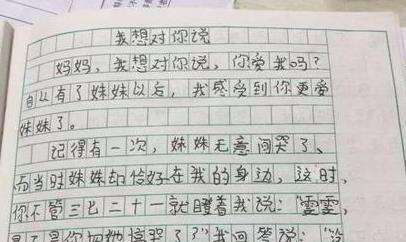 我想对你说
妈妈，我想对你说，你爱我吗？
自从有了妹妹以后，我感受到你更爱
妹妹了。
记得有一次，妹妹无意间哭了、
而当时妹妹却恰好在我的身边，这时，
你不管三七二十一就瞪着我说："雪雪，
是不是你把她搞哭了？"我回答说："没